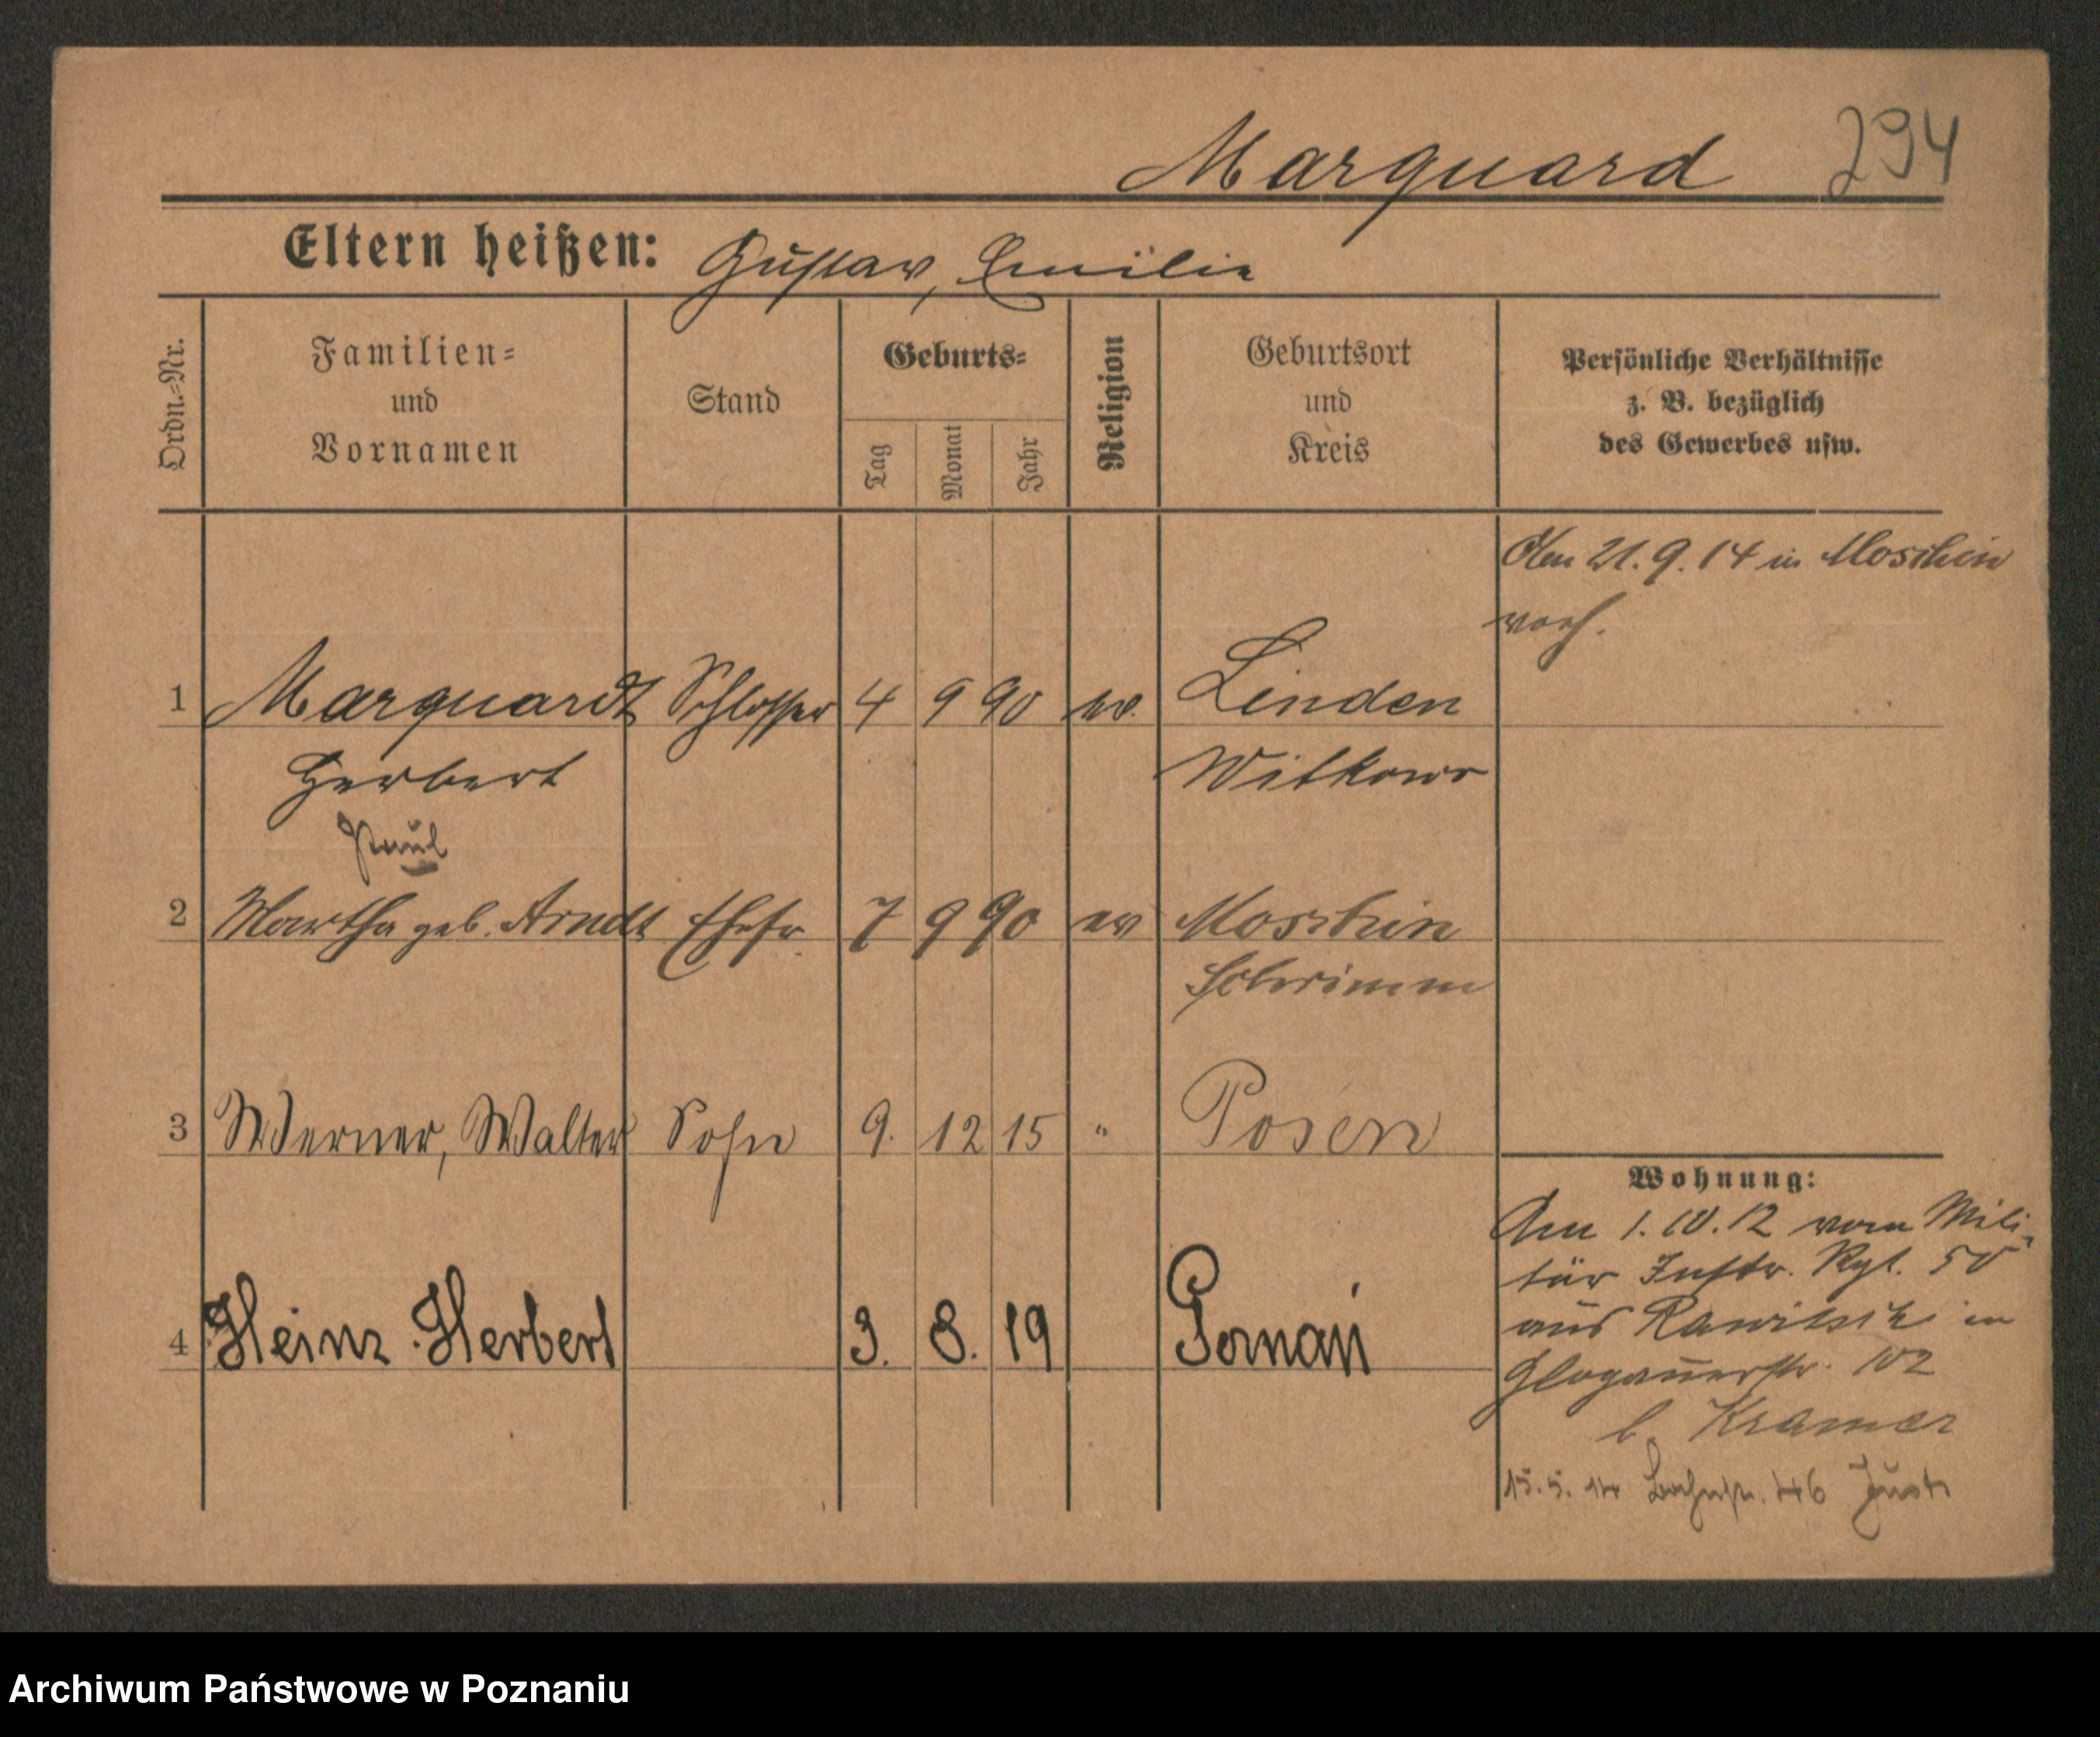 Marquard 294
Eltern heißen: Gustav, Emilie
Ordn.-Nr.
Familien-
und
Vornamen
Stand
Geburts-
Tag
Monat
Jahr
Religion
Geburtsort
und
Kreis
Persönliche Verhältnisse
z. B. bezüglich
des Gewerbes usw.
Den 21.9.14 in Moschin
verh.
1 Marquardt Schlosser 4 9 90 ev. Linden
Herbert Witkowo
Paul
2 Martha geb. Arndt Ehefr. 7 9 90 ev Moschin
Schrimm
3 Werner, Walter Sohn 9. 12 15 " Posen
Wohnung:
Am 1.10.12 vom Mili-
tär Inftr. Rgt. 50
aus Rawitsch in
Glogauerstr. 102
b. Kramer
4 Heinz Herbert 3. 8. 19 Poznań
15.5.14 Bahnstr. 46 Just
Archiwum Państwowe w Poznaniu